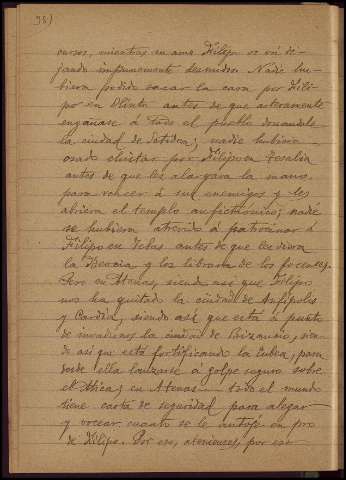 98)
cursos, mientras en ama Filipo se vá de-
jando impunemente desnudos. Nadie hu-
biera podido sacar la cara por Fili-
po en Olinto antes de que arteramente
engañase á todo el pueblo donandole
la ciudad de Potidea; nadie hubiera
osado chistar por Filipo en Tesalia
antes de que les alargara la mano,
para vencer á sus enemigos y les
abriera el templo anfictiónico; nadie
se hubiera atrevido á patrocinar á
Filipo en Tebas antes de que le diera
la Beocia y los librara de los focenses.
Pero en Atenas, siendo así que Filipo
nos ha quitado la ciudad de Anfípoles
y Cardia, siendo así que está á punto
de invadirnos la ciudad de Bizancio, sien-
do así que está fortificando la Eubea, para
desde ella lanzarse á golpe seguro sobre
el Atica, en Atenas... todo el mundo
tiene carta de seguridad para alegar
y vocear cuanto se le antoje en pro
de Filipo. Por eso, atenienses, por eso